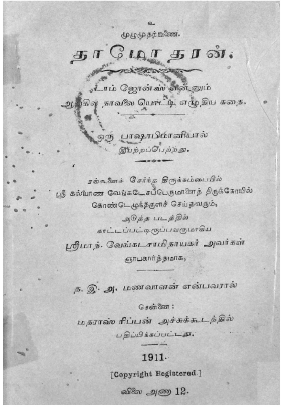 உ
முழுமுதற்றுணை.
தாமோதரன்.
டாம் ஜோன்ஸ் என்னும்
ஆங்கில நாவலை யொட்டி எழுதிய கதை.
ஒரு பாஷாபிமானியால்
இயற்றப்பெற்றது.
சேர்ந்த திருக்கம்பையில்
ஸ்ரீ கல்யாண வேங்கடேசப்பெருமாளைத் திருக்கோயில்
கொண்டெழுந்தருளச் செய்தவரும்,
அடுத்த படத்தில்
காட்டப்பட்டிருப்பவருமாகிய
ஸ்ரீமாந். வேங்கடசாமிநாயகர் அவர்கள்
ஞாபகார்த்தமாக,
ந. இ. அ. மணவாளன் என்பவரால்
சென்னை:
மதராஸ் ரிப்பன் அச்சுக்கூடத்தில்
பதிப்பிக்கப்பட்டது.
1911.
[Copyright Registered.]
விலை அணா 12.